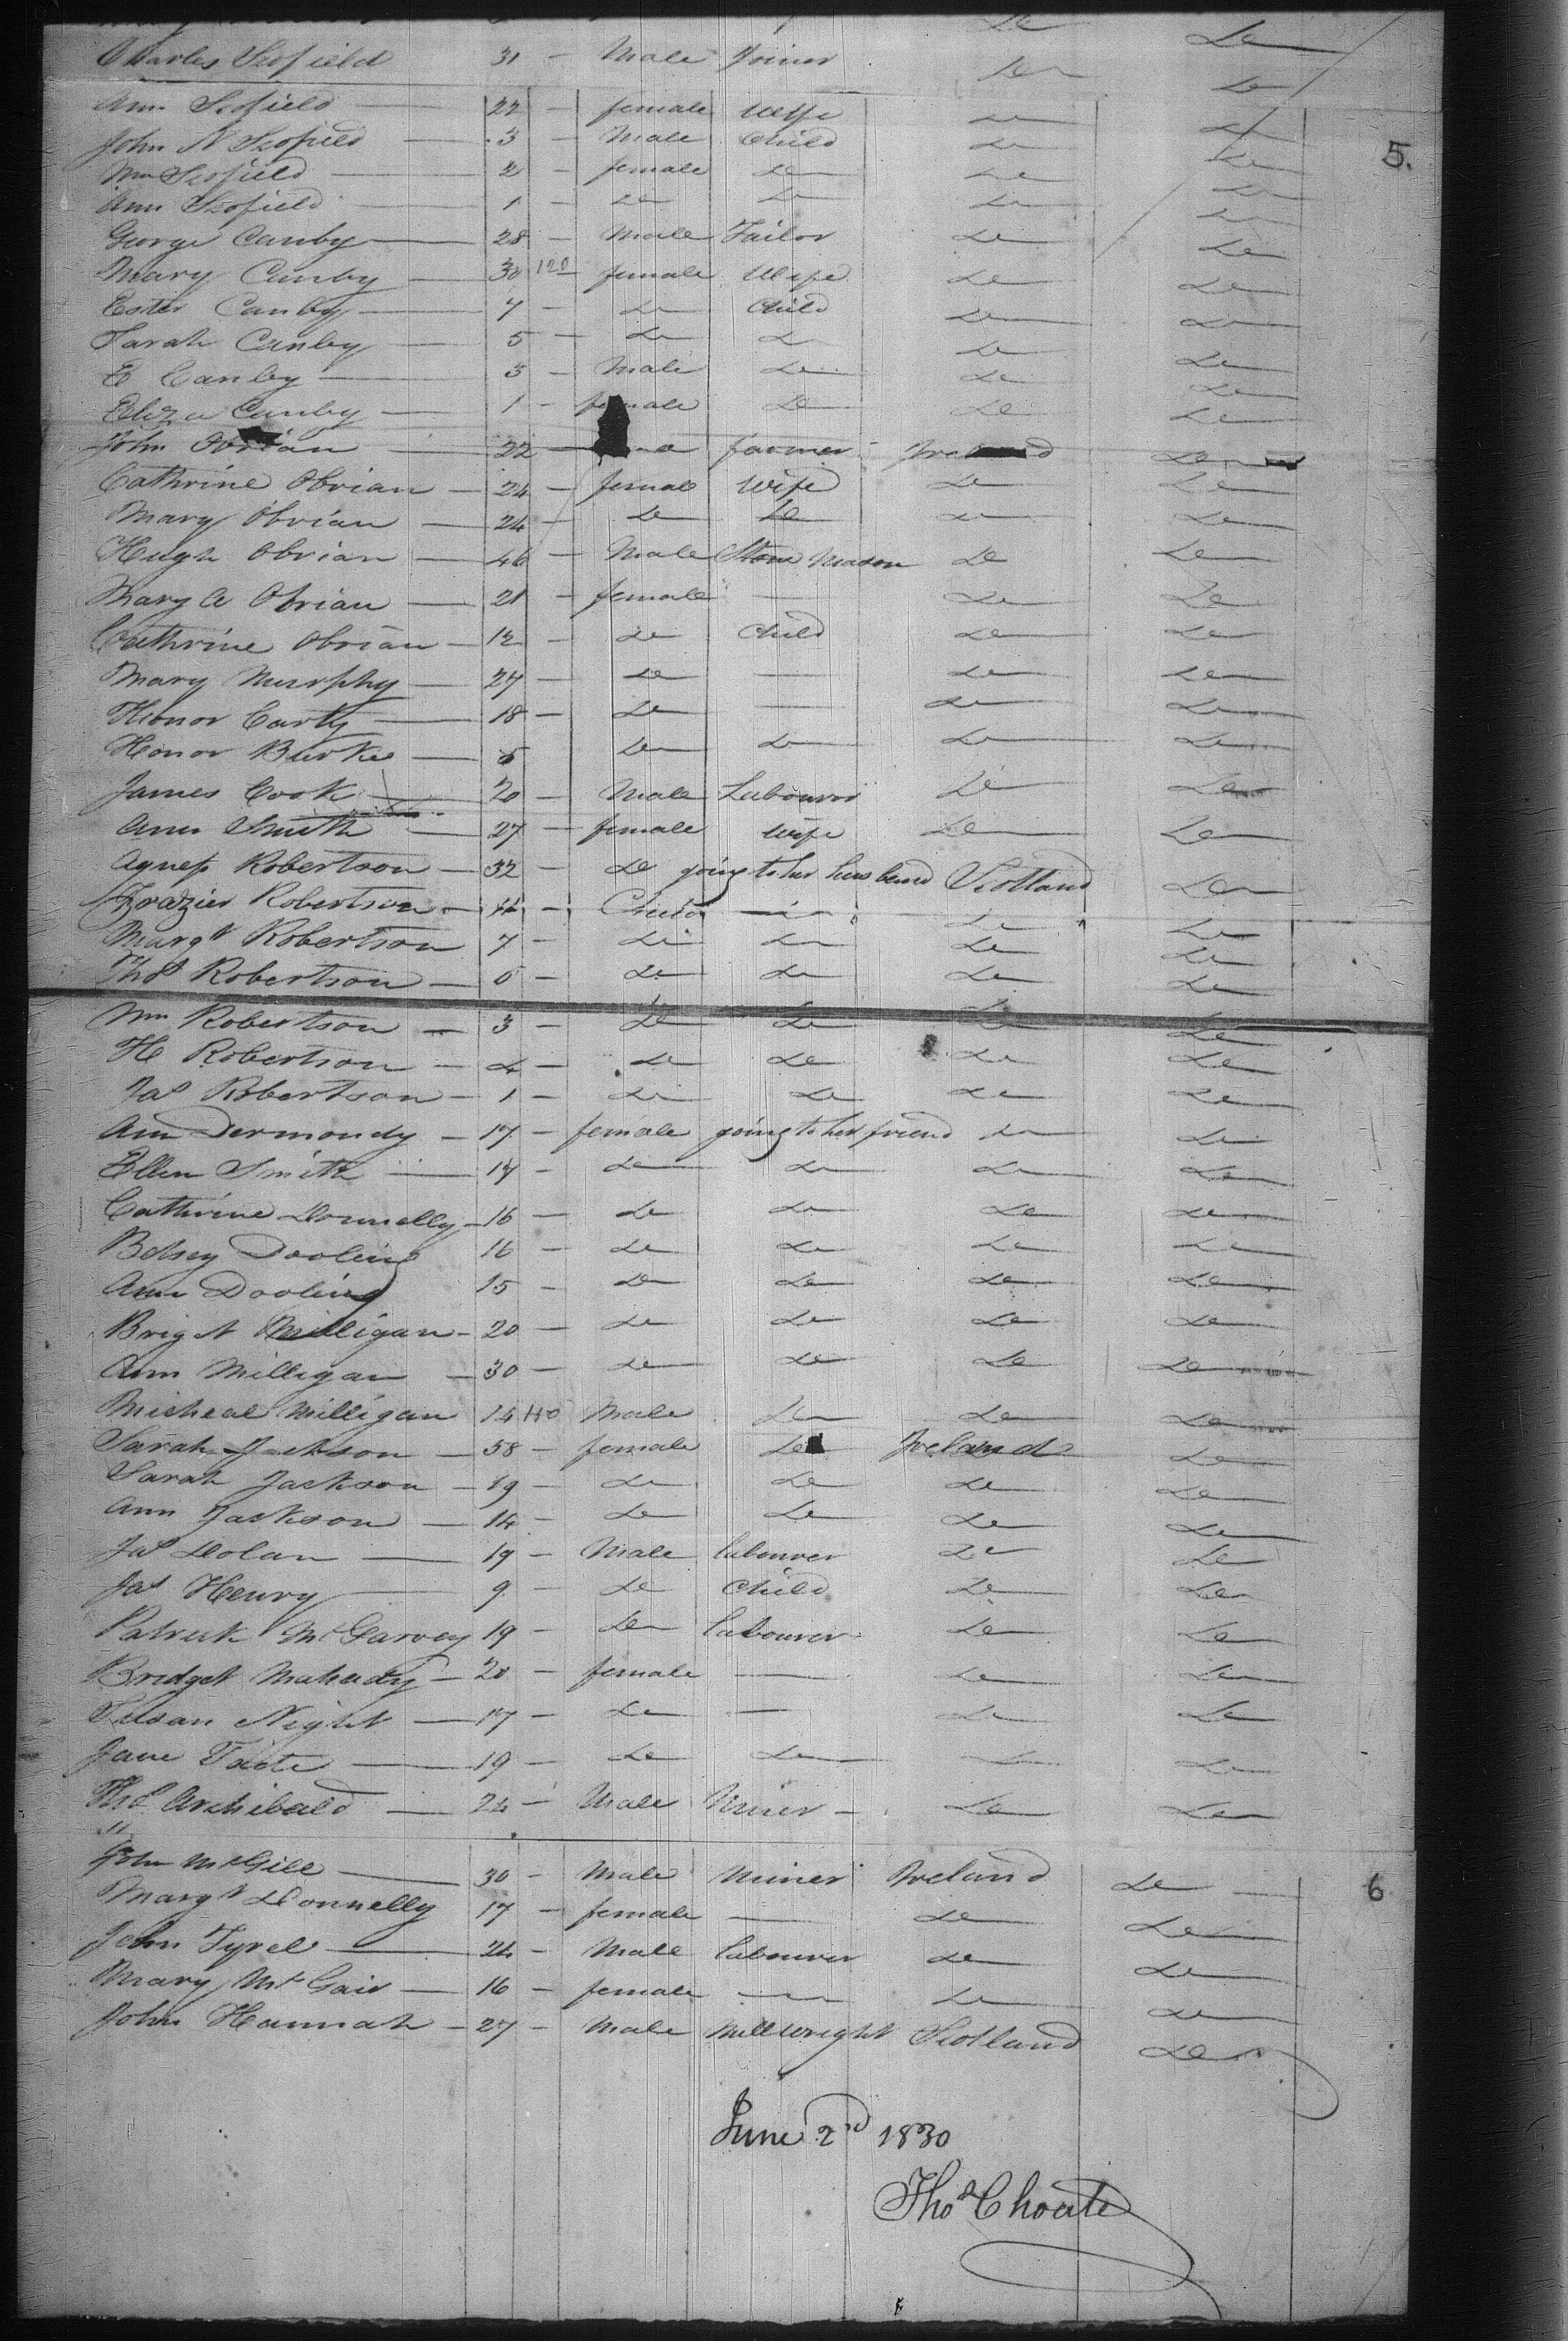 Charles Scofield 31 - Male Joiner Do Do
Ann Scofield 22 - female Wife Do Do
John N Scofield 3 - Male Child Do Do
5.
Wm Scofield 2 - female Do Do Do
Ann Scofield 1 - Do Do Do Do
George Canby 28 - Male Tailor Do Do
Mary Canby 30 120 female Wife Do Do
Ester Canby 7 - Do Child Do Do
Sarah Canby 5 - Do Do Do Do
E Canby 3 - Male Do Do Do
Eliza Canby 1 - female Do Do Do
John Obrian 22 - farmer Ireland Do
Cathrine Obrian - 24 - female Wife Do Do
Mary Obrian - 24 - Do Do Do Do
Hugh Obrian - 46 - Male Stone Mason Do Do
Mary A Obrian - 21 - female - Do Do
Cathrine Obrian - 12 - Do Child Do Do
Mary Murphy - 27 - Do - Do Do
Honor Carty - 18 - Do - Do Do
Honor Burke - Do Do Do Do
James Cook 20 - Male Labourer Do Do
Ann Smith - 27 - female wife Do Do
Agness Robertson - 32 - Do going to her husband Scotland Do
Frazier Robertson - 11 - Child - Do Do
Margt Robertson 7 - Do Do Do Do
Thos Robertson - 5 - Do Do Do Do
Wm Robertson - 3 - Do Do Do Do
H Robertson - Do Do Do Do
Jas Robertson - 1 - Do Do Do Do
Ann Dermondy - 17 - female going to her friend Do Do
Ellen Smith - 17 - Do Do Do Do
Cathrine Donnelly - 16 - Do Do Do Do
Betsey Dooling 16 - Do Do Do Do
Ann Dooling 15 - Do Do Do Do
Brigt Milligan - 20 - Do Do Do Do
Ann Milligan - 30 - Do Do Do Do
Micheal Milligan 14 140 Male Do Do Do
Sarah Jackson - 58 - female Do Ireland Do
Sarah Jackson - 19 - Do Do Do Do
Ann Jackson - 14 - Do Do Do Do
Jas Dolan - 19 - Male labourer Do Do
Jas Henry 9 - Do Child Do Do
Patrick McGarvey 19 - Do labourer Do Do
Bridget Mahady - 20 - female - Do Do
Susan Night - 17 - Do - Do Do
Jane - 19 - Do Do Do Do
Thos Archibald - 24 - Male Miner - Do Do
John McGill - 30 - Male Miner Ireland Do
6
Margt Donnelly 17 - female - Do Do
John Tyrel - 24 - Male labourer Do Do
Mary - 16 - female - Do Do
John Hannah - 27 - Male Millwright Scotland Do
June 2nd 1830
Thos Choate